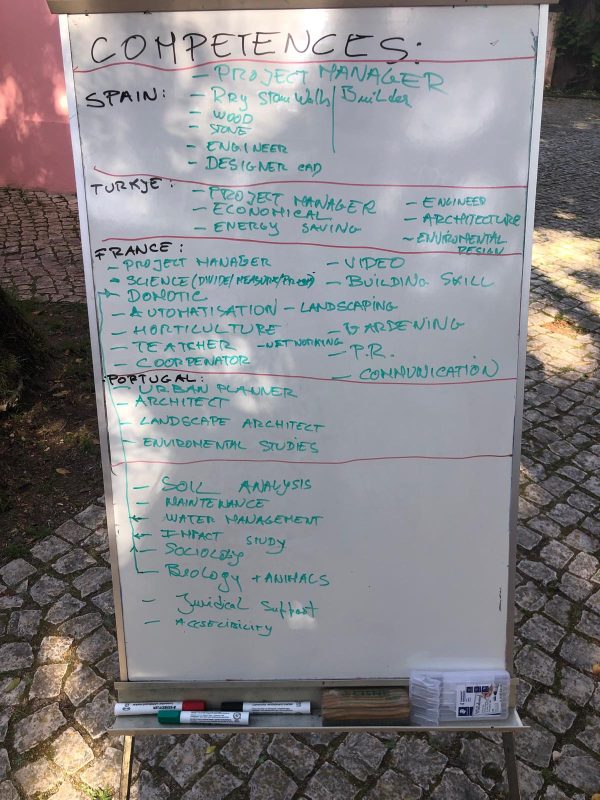 COMPETENCES:
SPAIN:
- PROJECT MANAGER
- Dry Stone Walls / Builder
- WOOD
- STONE
- ENGINEER
- DESIGNER CAD
TURKJE:
- PROJECT MANAGER
- ECONOMICAL
- ENERGY SAVING
- ENGINEER
- ARCHITECTURE
- ENVIROMENTAL DESIGN
FRANCE:
- PROJECT MANAGER
- VIDEO
- SCIENCE (DIVIDE/MEASURE/
- BUILDING SKILL
- DOMOTIC
- AUTOMATISATION - LANDSCAPING
- HORTICULTURE
- GARDENING
- TEATCHER - NETWORKING
- P.R.
- COORDENATOR
- COMMUNICATION
PORTUGAL:
- URBAN PLANNER
- ARCHITECT
- LANDSCAPE ARCHITECT
- ENVIROMENTAL STUDIES
- SOIL ANALYSIS
- MAINTENANCE
- WATER MANAGEMENT
- IMPACT STUDY
- SOCIOLOGY
- BIOLOGY + ANIMALS
- Juridical Support
- ACCSECIBILITY